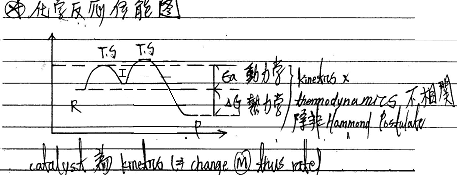 化學反應位能圖
T.S T.S
I
Ea 動力學 kinetics x
ΔG 熱力學 thermodynamics 不相關
R
除非 Hammond Postulate
P
catalyst 為 kinetics (⇒ change Ⓜ this rate)